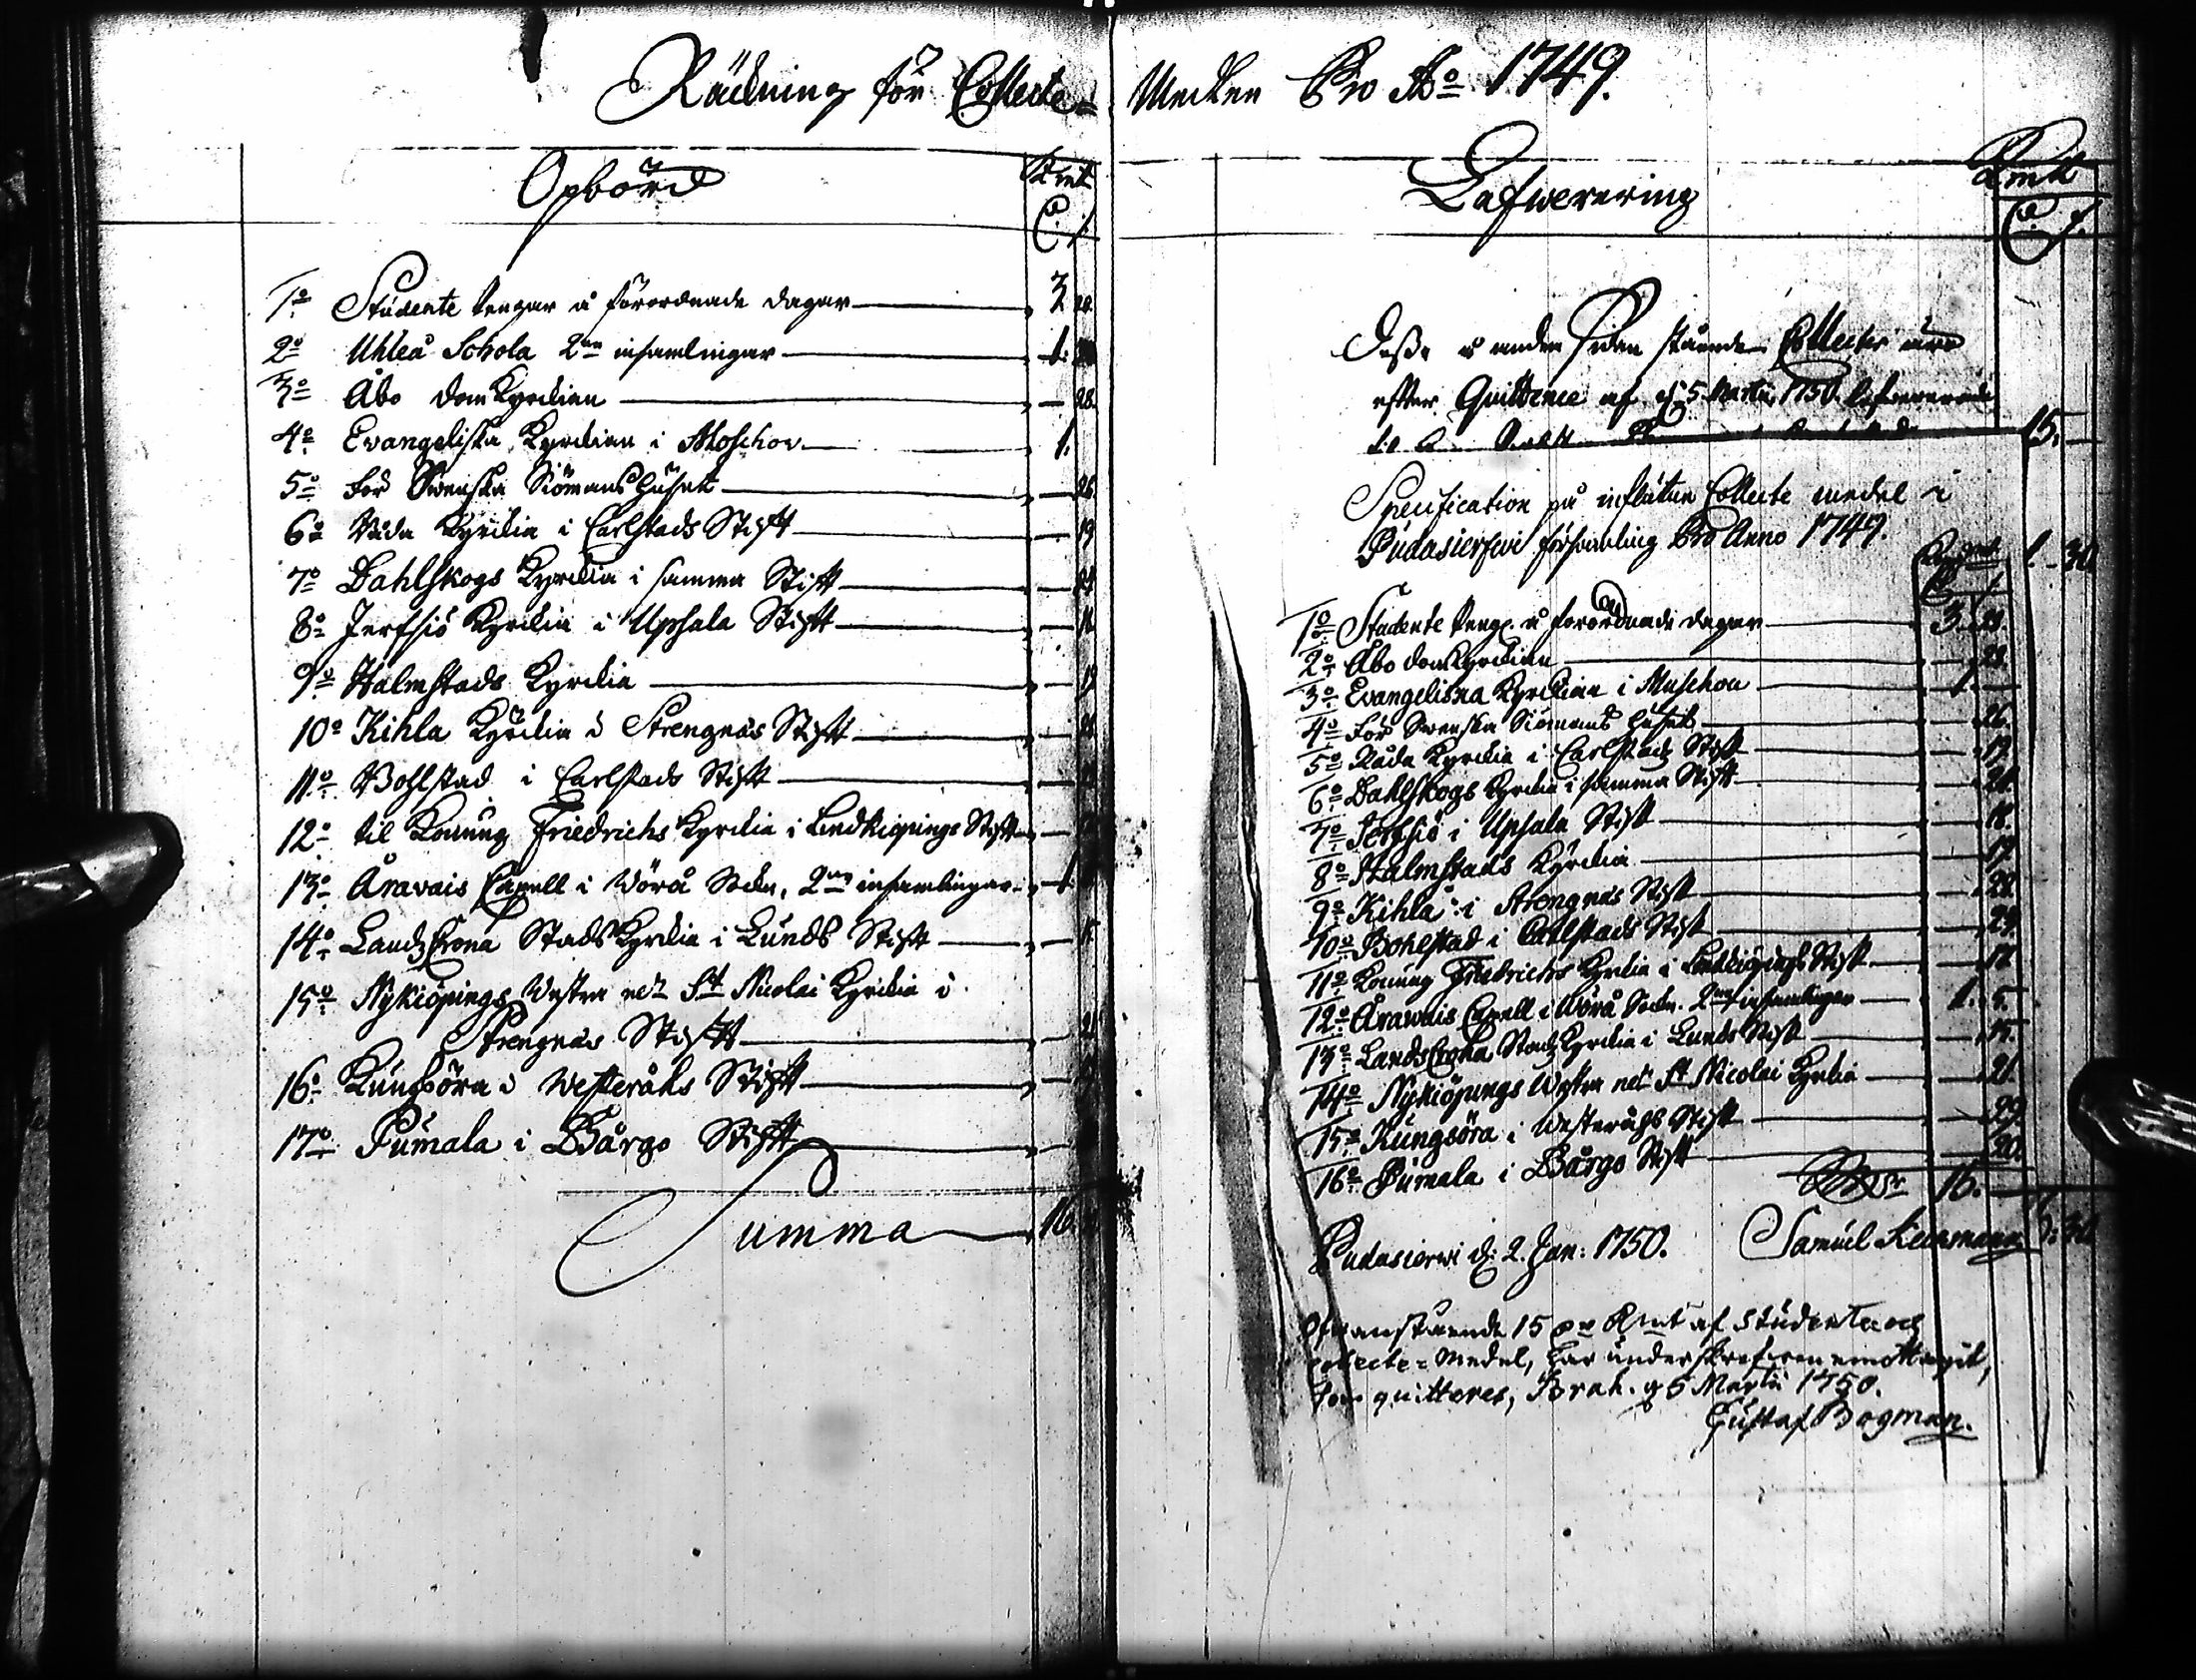 Räckning för Collecte=Medlen Pro Ao 1749.
Opbörd
Kmt
1o Studente Pengar å förordnade dagar 3 28.
2o Uhleå Schola 2ne insamlingar 1.
3o Åbo domKyrckian 28.
4o Evangeliska Kyrckian i Moschov 1.
5o För Swenska Siömans Huset 26
6o Råda Kyrckia i Carlstads Stift 19
7o Dahlskogs Kyrckia i samma Stift 24
8o Jerfsiö Kyrckia i Upsala Stift
9o Halmstads Kyrckia
10o Kihla Kyrckia i Strengnäs Stift
11o Bohlstad i Carlstads Stift
12o til Konung Friedrichs Kyrckia i Lindkiöpings Stift
13o Åravais Capell i Wörå Sockn, 2ne insamlingar 1.
14o LandzCrona Stads Kyrckia i Lunds Stift
15o Nykiöpings Westra och St Nicolai Kyrckia i
Strengnäs Stift 21
16o Kungsöra i Westeråhs Stift
17o Pumala i Bårgo Stift
Summa 16.
Lefwerering
Kmt
Desse å andra Sidan stående Collecter äro
efter Quittence af d. 5 Martii 1750. lefwererade
15.
Specification på influtne Collecte medel i
Pudasierfwi församling Pro Anno 1749.
1o Studente Peng. å förordnade dagar 3. 28.
2o Åbo domKyrckian 28.
3o Evangeliska Kyrckian i Muschou 1.
4o För Swenska Siömans Huset 26.
5o Råda Kyrckia i Carlstads Stift 19.
6o Dahlskogs Kyrckia i samma Stift 24.
7o Jerfsiö i Upsala Stift 18.
8o Halmstads Kyrckia 19.
9o Kihla i Strengnäs Stift 28.
10o Bohlstad i Carlstads Stift 24.
11o Konung Friedrichs Kyrckia i Lindkiöpings Stift
12o Årawais Capell i Wörå Sockn. 2ne insamlingar 1. 5.
13o LandsCrona Stadz Kyrckia i Lunds Stift 15.
14o Nykiöpings Westra och St Nicolai Kyrkia 21.
15o Kungsöra i Westeråhs Stift 29.
16o Pumala i Bårgo Stift 20.
15.
Pudasierwi d. 2. Jan: 1750. Samuel
Ofwanstående 15 Dr Kmt af Studente och
collecte=Medel, har underskrefwen emottagit,
som quitteres, Brah. d 5 Martii 1750.
Gustaf Bogman.